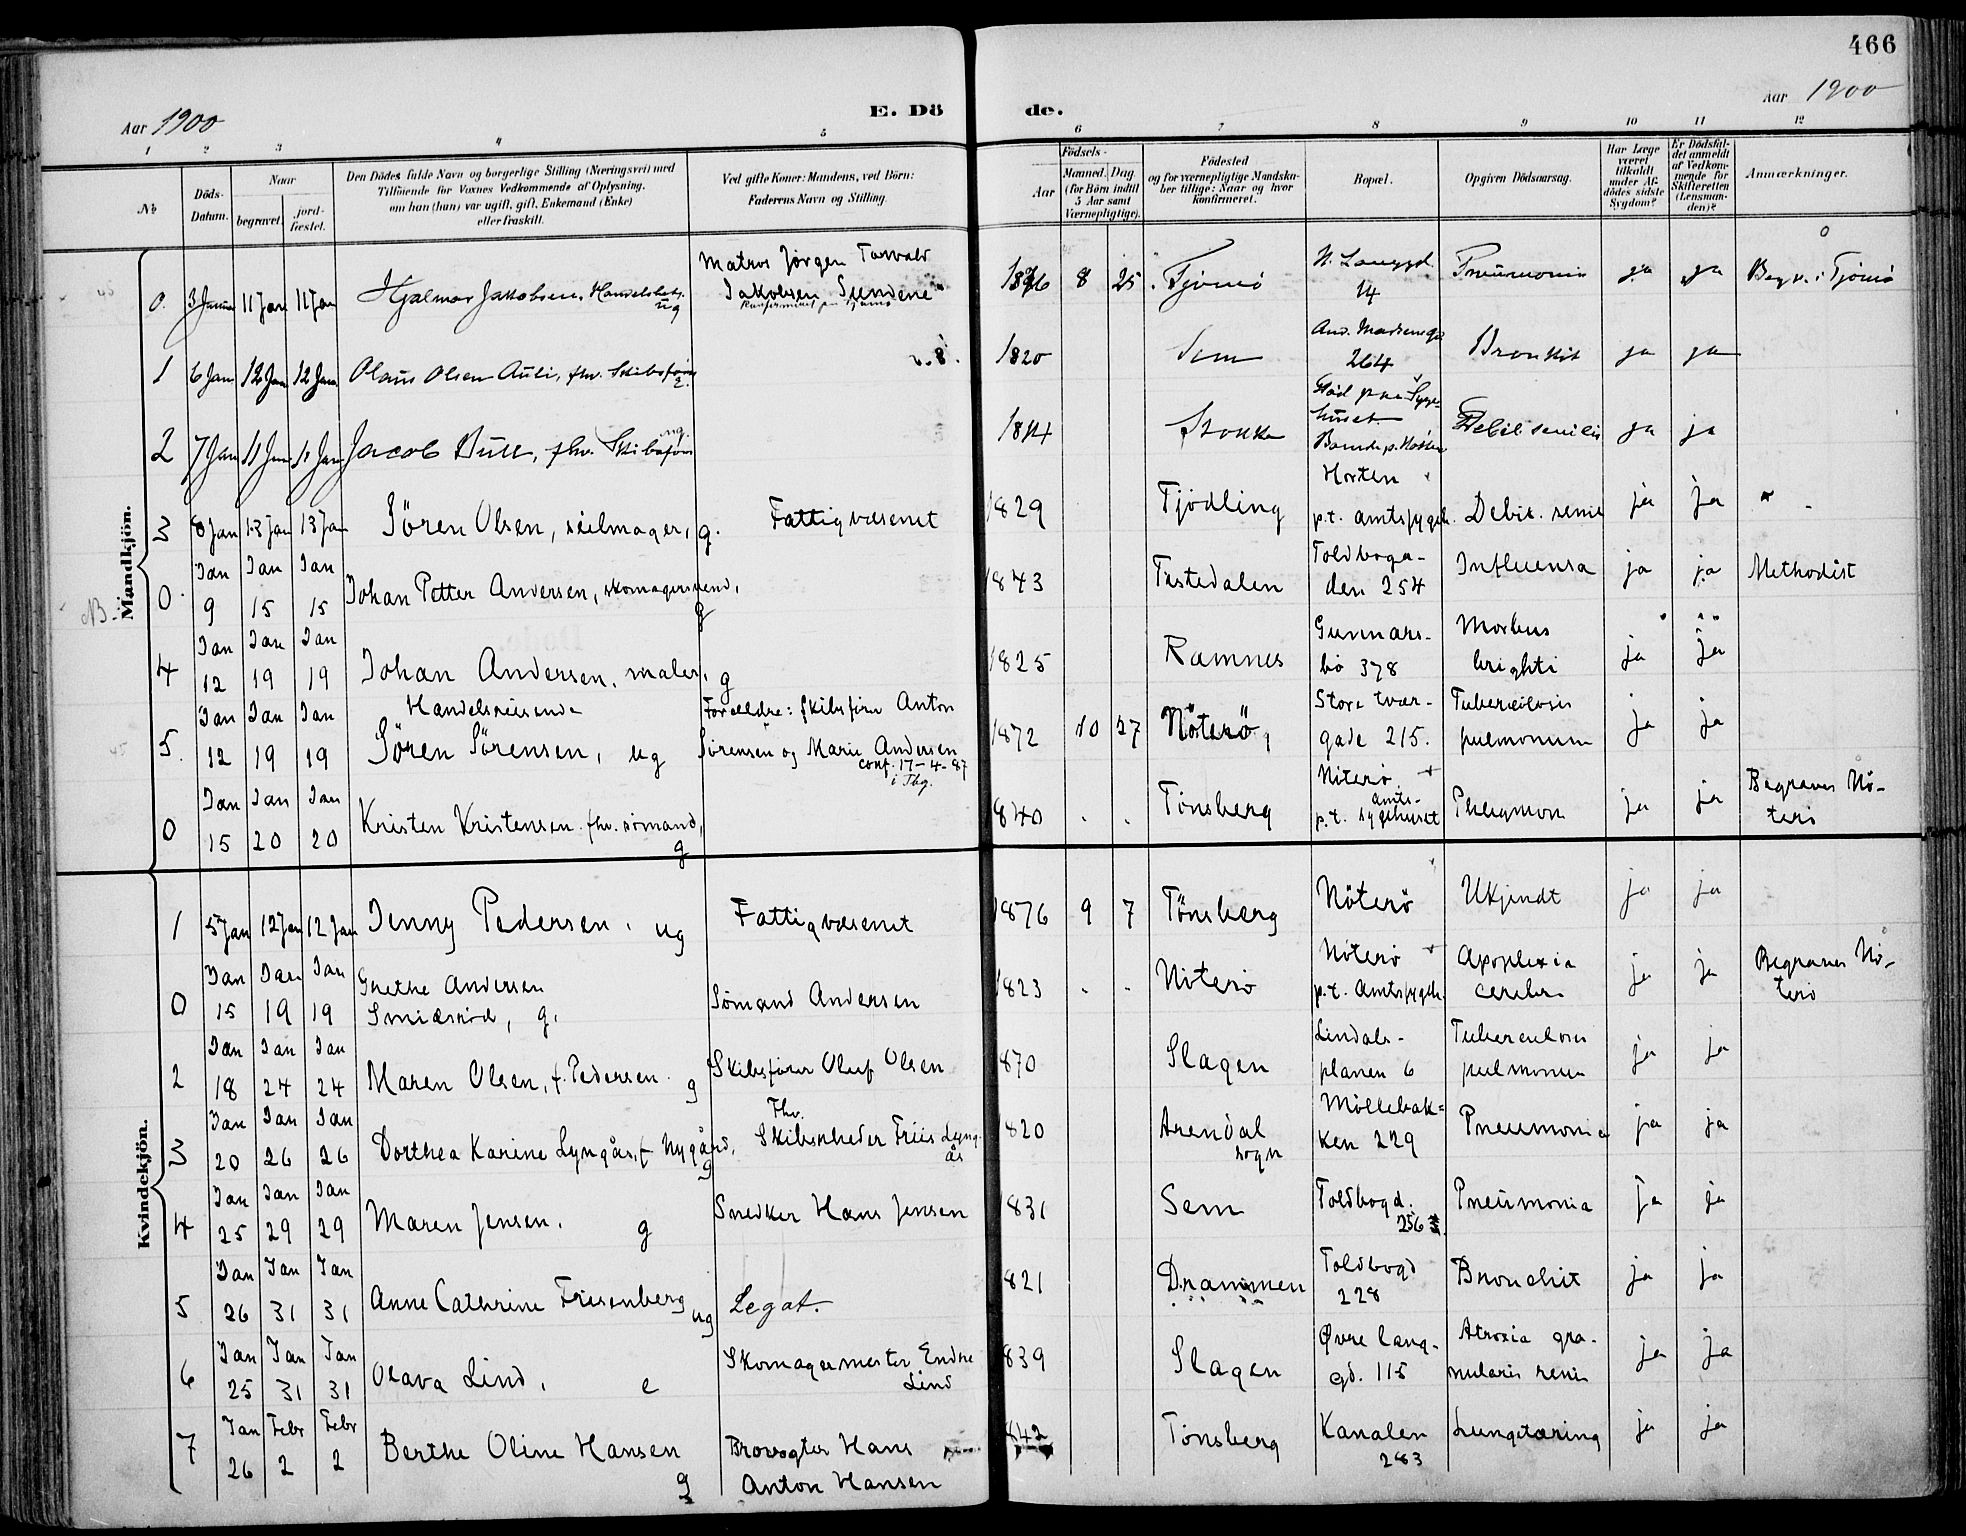 466
Aar 1900
E. Dö
de.
Aar 1900
1 2 3 4 5 6 7 8 9 10 11 12
No
Döds-Datum.
Naar
begravet.
jord-fæstet.
Den Dödes fulde Navn og borgerlige Stilling (Næringsvei) med
Tilföiende for Voxnes Vedkommende af Oplysning,
om han (hun) var ugift, gift, Enkemand (Enke)
eller fraskilt.
Ved gifte Koner: Mandens, ved Börn:
Faderens Navn og Stilling.
Födsels-
Aar
Maaned. Dag.
(for Börn indtil
5 Aar samt
Værnepligtige).
Födested
og for værnepligtige Mandska-
ber tillige: Naar og hvor
konfirmeret.
Bopæl.
Opgiven Dödsaarsag.
Har Læge
været
tilkaldt
under Af-
dödes sidste
Sygdom?
Er Dödsfal-
det anmeldt
af Vedkom-
mende for
Skifteretten
(Lensman-
den)?
Anmærkninger.
Mandkjön.
0. 3 Januar 11 Jan 11 Jan Hjalmar Jakobsen, Handelsbetj. ug
Matros Jørgen Torvald
Jakobsen Sundene
1876 8 25 Tjömö N. Langgd. 14 Pneumonie ja ja Begr. i Tjömö
1 6 Jan 12 Jan 12 Jan Olaus Olsen Auli, fhv. Skibsförer e.
1820 Sem And. Madsensgd. 264 Bronkit ja ja
2 7 Jan 11 Jan 11 Jan Jacob Bull, fhv. Skibsförer ug.
1814 Stokke Död paa Syge-
huset. Debil. senilis ja ja
3 8 Jan 13 Jan 13 Jan Sören Olsen, seilmager, g. Fattigvæsenet
1829 Tjödling Horten
p.t. amtssygeh. Debil. senil ja ja
0. Jan 9 Jan 15 Jan 15 Johan Petter Andersen, skomagersvend, g
1843 Tistedalen Toldboga-
den 254 Influensa ja ja Methodist
4 Jan 12 Jan 19 Jan 19 Johan Andersen, maler, g
1825 Ramnes Gunnars-
bö 378 Morbus
brighti ja ja
5. Jan 12 Jan 19 Jan 19 Handelsreisende
Sören Sörensen, ug
Forældre: skibsförer Anton
Sörensen og Marie Andersen
conf. 17-4-87
i Tbg.
1872 10 27 Nöterö, Store tvær-
gade 215. Tuberculosis
pulmonum ja ja
0 Jan 15 Jan 20 Jan 20 Kristen Kristensen. fhv. sömand, g
840 Tönsberg Nöterö
p.t. amts-
sygehuset Phlegmon ja ja Begraves Nö-
terö
Kvindekjön.
1 5 Jan 12 Jan 12 Jan Jenny Pedersen. ug Fattigvæsenet
1876 9 7 Tönsberg Nöterö Ukjendt ja ja
0 Jan 15 Jan 19 Jan 19 Grethe Andersen
Smidsröd, g. Sömand Andersen
1823 Nöterö Nöterö
p.t. Amtssygeh. Apoplexia
cerebri ja ja Begraves Nö-
terö
2 Jan 18 Jan 24 Jan 24 Maren Olsen, f. Pedersen. g Skibsförer Oluf Olsen
870 Slagen Lindals-
planen 6 Tuberculosis
pulmonum ja ja
3 Jan 20 Jan 26 Jan 26 Dorthea Karine Lyngås, f. Nygård, g
Fhv.
Skibsrheder Friis Lyng-
ås
820 Arendal
sogn Möllebak-
ken 229 Pneumonia ja ja
4 Jan 25 Jan 29 Jan 29 Maren Jensen. g Snedker Hans Jensen
831 Sem Toldbogd.
256 Pneumonia ja ja
5 Jan 26 Jan 31 Jan 31 Anne Cathrine Friisenberg ug Legat.
821 Drammen Toldbogd
228 Bronchit ja ja
6 Jan 25 Jan 31 Jan 31 Olava Lind. e Skomagermester Endre
Lind
839 Slagen Øvre lang-
gd. 115 Atroxia gra-
nularis renis ja ja
7 Jan 26 Febr 2 Febr 2 Berthe Oline Hansen g Brovogter Hans
Anton Hansen
842 Tönsberg Kanalen
283 Lungetæring ja ja